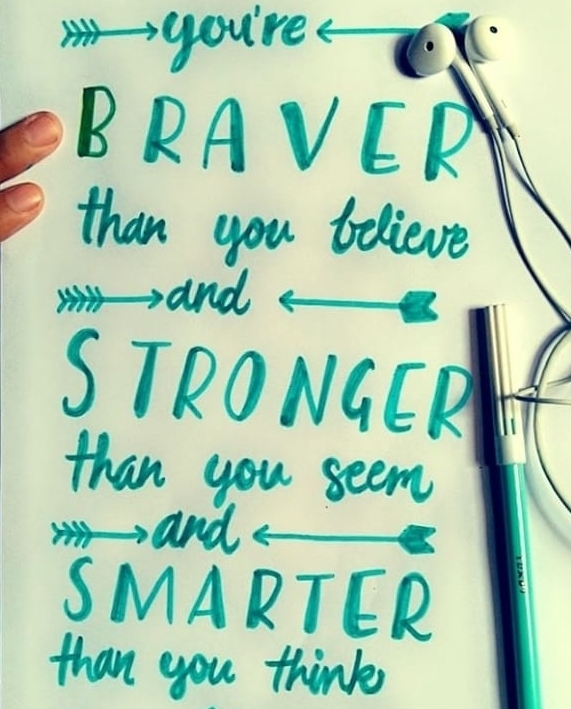 you're
BRAVER
than you believe
and
STRONGER
than you seem
and
SMARTER
than you think